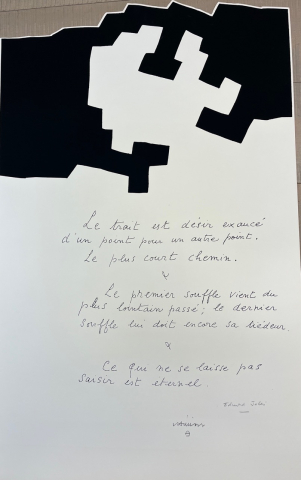 Le trait est désir exaucé
d'un point pour un autre point.
Le plus court chemin.
Le premier souffle vient du
plus lointain passé ; le dernier
souffle lui doit encore sa tiédeur.
Ce que ne se laisse pas
saisir est eternel.